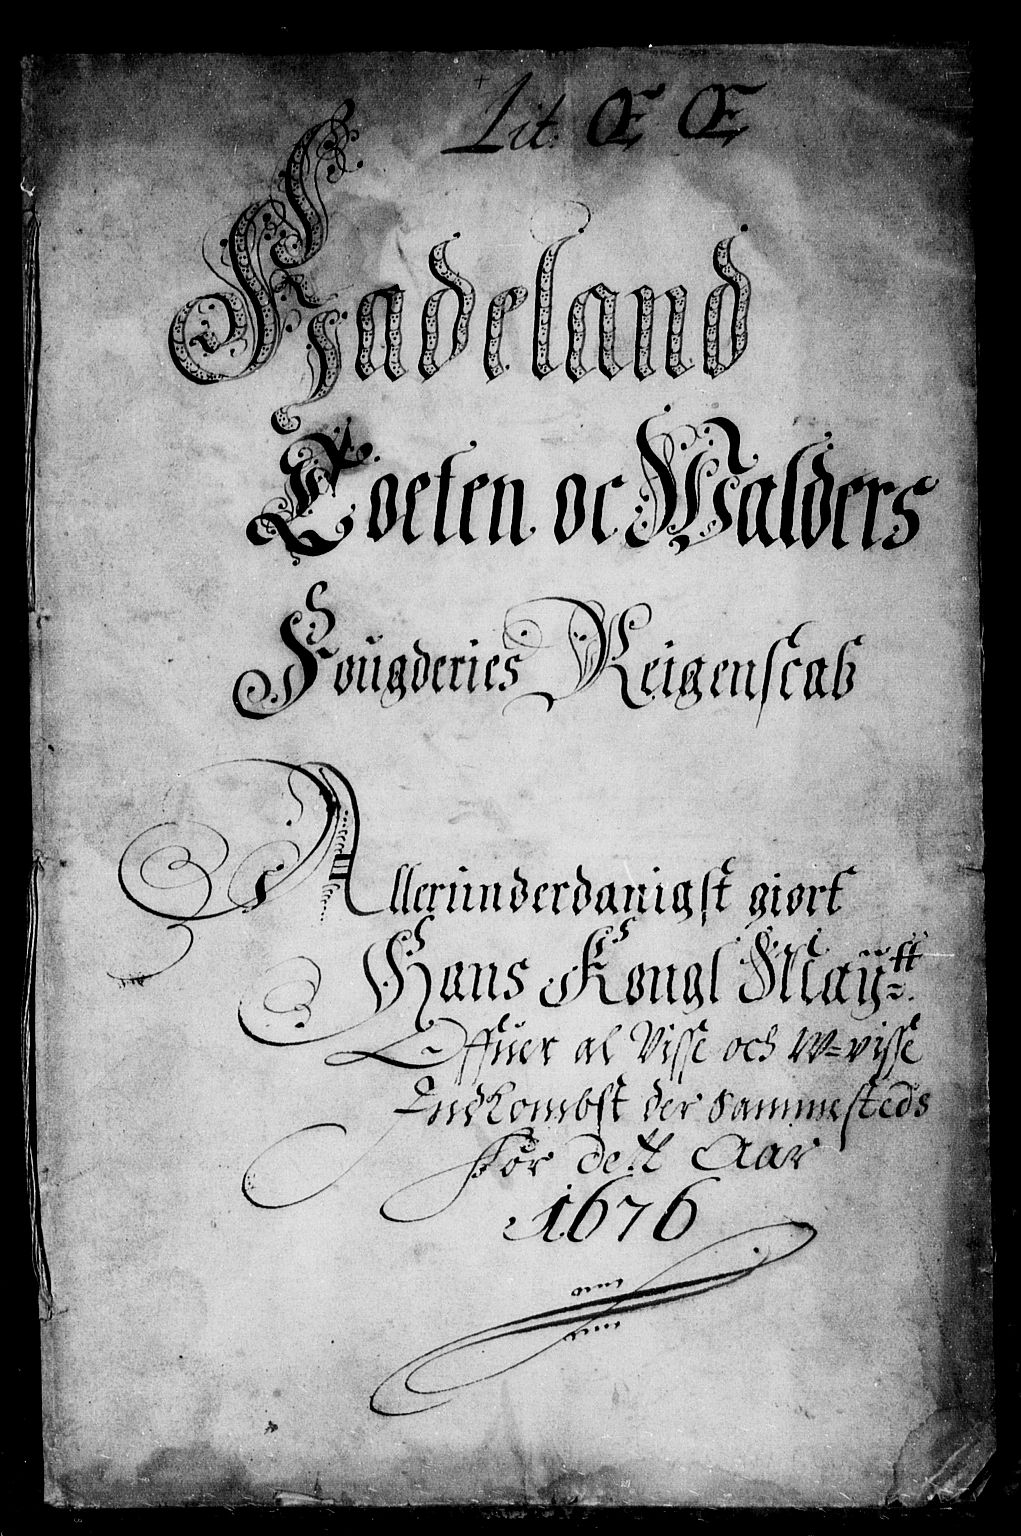 Lit. Œ Œ
Hadeland
Toeten oc Walders
Fougderies Reigenscab
Allerunderdanigst giort
Hans Kongl Maÿtt
Offuer al Visse och W=visse
Indkombst der Sammesteds
For dett Aar
1676